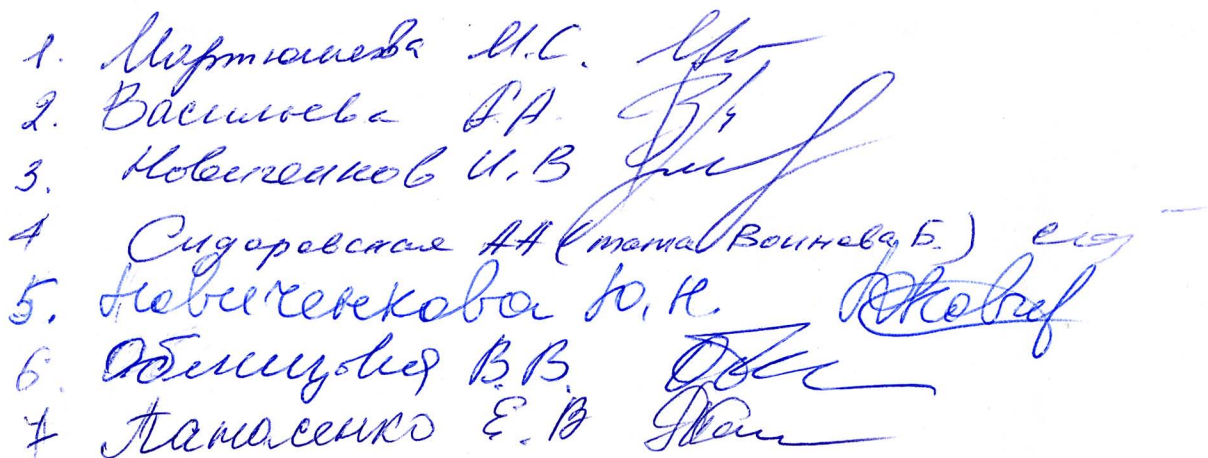 1. Мартюшева М.С.
2. Васильева А.А.
3. Новиченков И.В
4 Сидоровская АА (мама Воинова Б.)
5. Новиченкова Ю.Н.
6. В.В.
7 Панасенко Е.В